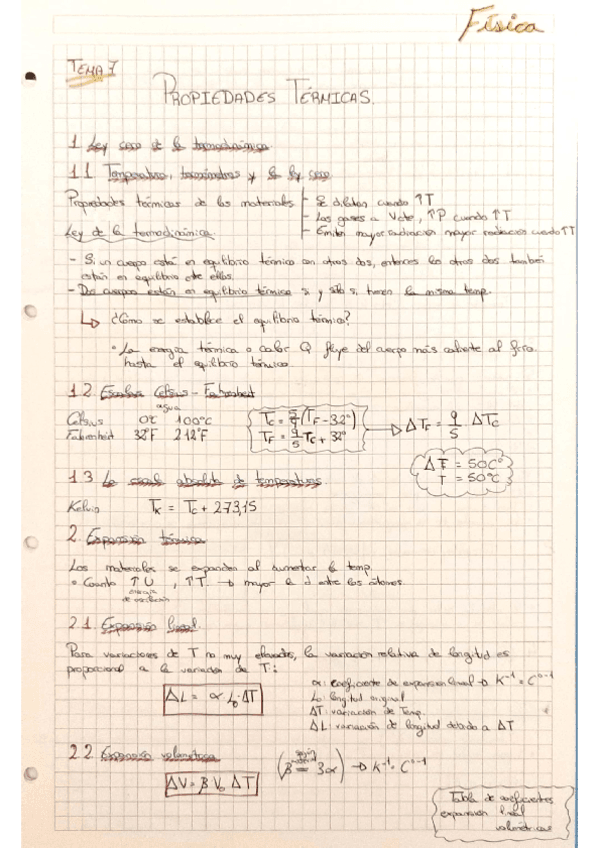 Física
TEMA 7
PROPIEDADES TÉRMICAS.
1 Ley cero de la termodinámica.
1.1 Temperatura, termómetros y la ley cero
Propiedades térmicas de los materiales - Se dilatan cuando ↑T
- Los gases a V cte, ↑P cuando ↑T
- Emiten mayor radiación mayor radiación cuando ↑T
Ley de la termodinámica.
- Si un cuerpo está en equilibrio térmico con otros dos, entonces los otros dos también
están en equilibrio entre ellos.
- Dos cuerpos están en equilibrio térmico si y sólo si, tienen la misma temp.
↳ ¿Cómo se establece el equilibrio térmico?
• La energía térmica o calor Q fluye del cuerpo más caliente al frío
hasta el equilibrio térmico.
1.2. Escalas Celsius - Fahrenheit
agua
Celsius 0℃ 100℃
Fahrenheit 32°F 212°F
Tc = 5/9 (TF - 32°)
TF = 9/5 Tc + 32°
→ ΔTF = 9/5 · ΔTc
ΔT = 50C°
T = 50°C
1.3 La escala absoluta de temperaturas.
Kelvin Tk = Tc + 273,15
2. Expansión térmica
Los materiales se expanden al aumentar la temp.
• Cuanto ↑U , ↑T → mayor la d entre los átomos.
energía
de oscilación
2.1. Expansión lineal.
Para variaciones de T no muy elevadas, la variación relativa de longitud es
proporcional a la variación de T:
ΔL = α L₀ ΔT
α: coeficiente de expansión lineal → K⁻¹ = C°⁻¹
L₀: longitud original
ΔT: variación de Temp.
ΔL: variación de longitud debido a ΔT
2.2. Expansión volumétrica
ΔV = β V₀ ΔT
(β = 3α) → K⁻¹ = C°⁻¹
Tabla de coeficientes
expansión lineal
volumétricas